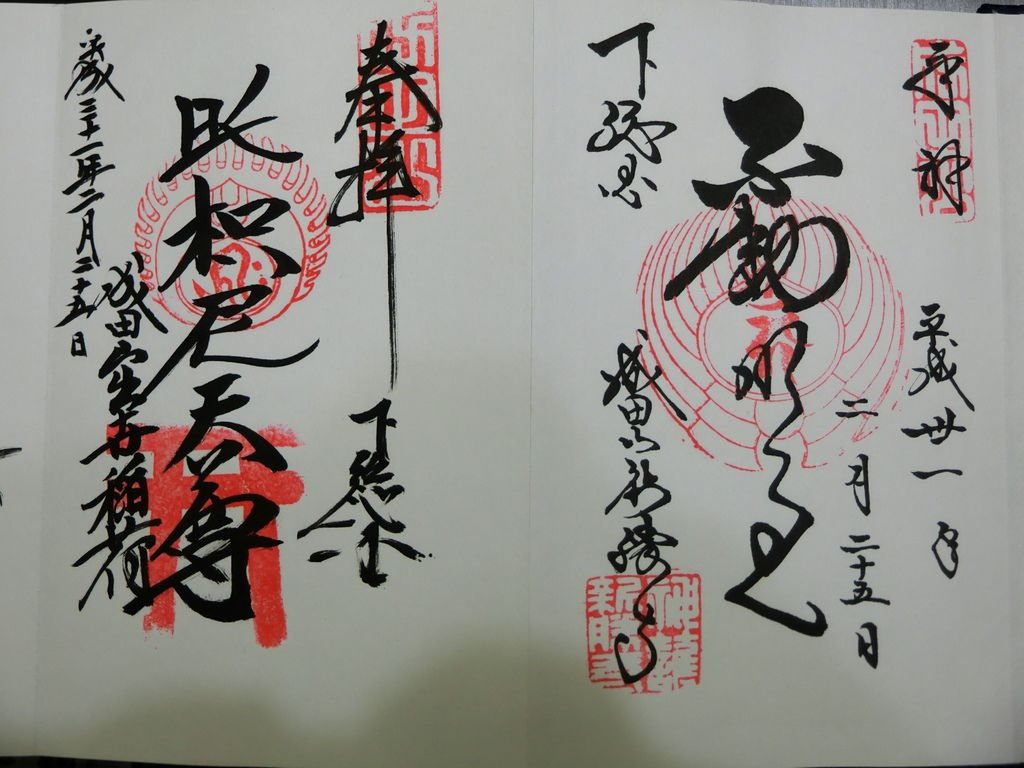 奉拝
平成卅一年
二月二十五日
不動明王
下総国
成田山新勝寺
奉拝
下総国
吒枳尼天尊
成田山出世稲荷
平成三十一年二月二十五日